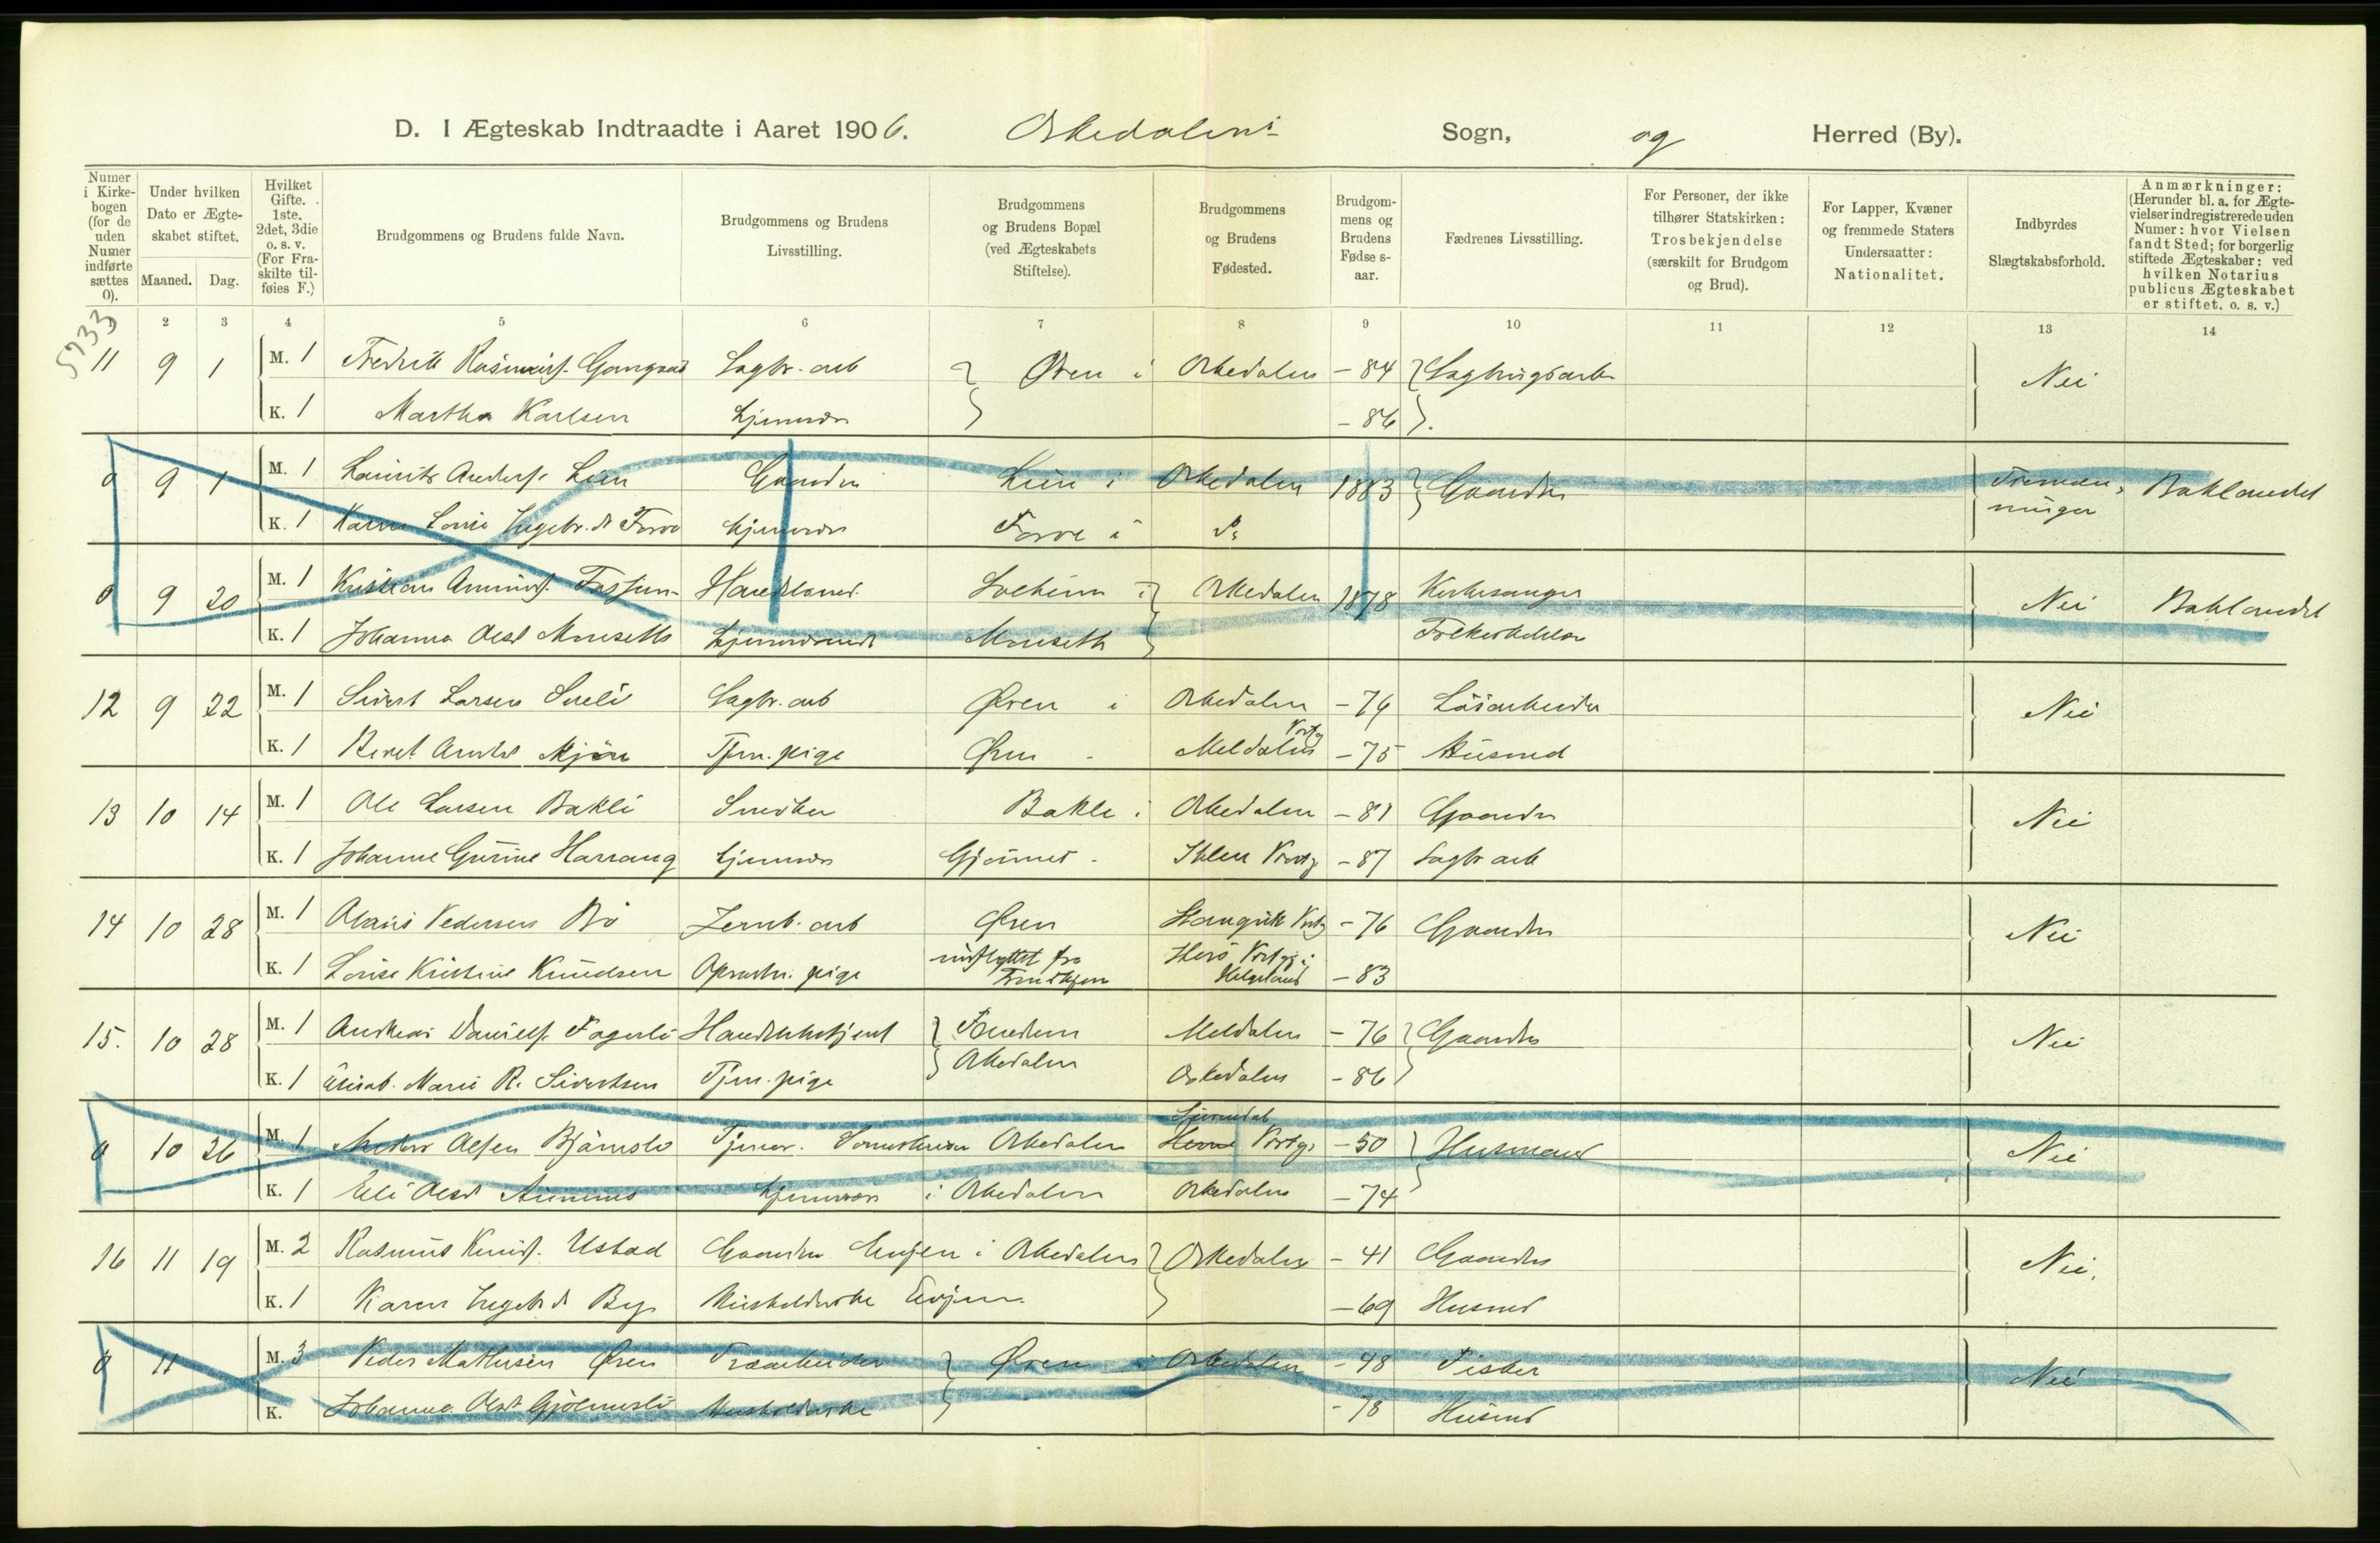 D. I Ægteskab Indtraadte i Aaret 1906. Orkedalens Sogn, og Herred (By).
Numer i Kirkebogen (for de uden Numer indførte sættes 0).
Under hvilken Dato er Ægteskabet stiftet.
Maaned. Dag.
Hvilket Gifte. 1ste, 2det, 3die o. s. v. (For Fraskilte tilføies F.)
Brudgommens og Brudens fulde Navn.
Brudgommens og Brudens Livsstilling.
Brudgommens og Brudens Bopæl (ved Ægteskabets Stiftelse).
Brudgommens og Brudens Fødested.
Brudgommens og Brudens Fødselsaar.
Fædrenes Livsstilling.
For Personer, der ikke tilhører Statskirken: Trosbekjendelse (særskilt for Brudgom og Brud).
For Lapper, Kvæner og fremmede Staters Undersaatter: Nationalitet.
Indbyrdes Slægtskabsforhold.
Anmærkninger: (Herunder bl. a. for Ægtevielser indregistrerede uden Numer: hvor Vielsen fandt Sted; for borgerlig stiftede Ægteskaber: ved hvilken Notarius publicus Ægteskabet er stiftet. o. s. v.)
5733
2 3 4 5 6 7 8 9 10 11 12 13 14
11 9 1 M. 1 Fredrik Rasmuss. Gangaas Sagbr. arb Øren i Orkedalen - 84 Sagbrugsarb Nei
K. 1 Martha Karlsen hjemmev - 86
0 9 1 M. 1 Lauritz Anders. Lien Gaardm Lien i Orkedalen 1883 Gaardm Baklandet
K. 1 Karen Lovise Ingebr. dt Forve hjemmev Forve i
0 9 20 M. 1 Kristian Handelsmd. Orkedalen 1878 Kirkesanger Nei Baklandet
K. 1 Johanna Olsd Monseth hjemmev Monseth
12 9 22 M. 1 Sivert Larsen Sagbr. arb Øren i Orkedalen - 76 Løsarbeider Nei
K. 1 Beret Arntsd Mjøen Tjen. pige Øren - Meldalen - 75 Husmd
13 10 14 M. 1 Ole Larsen Bakli Snedker Bakli i Orkedalen - 81 Gaardm Nei
K. 1 Johanne Gurine Harrang hjemmev - Ihlen - 87 Sagbr arb
14 10 28 M. 1 Pedersen Bø Jernb. arb Øren Stangvik - 76 Gaardm Nei
K. 1 Lovise Kristine Knudsen pige indflyttet fra Trondhjem Herø Helgeland - 83
15. 10 28 M. 1 Andreas Daniels. Fagerli Handelsbetjent Meldalen - 76 Gaardm Nei
K. 1 Marie R. Sivertsen Tjen. pige Orkedalen Orkedalen - 86
0 10 26 M. 1 Anders Olsen Bjørnsli Tjener Orkedalen Surendal - 50 Husmand Nei
K. 1 Eli Olsd hjemmev i Orkedalen Orkedalen - 74
16 11 19 M. 2 Rasmus Knuds. Ustad Gaardm Evjen i Orkedalen Orkedalen - 41 Gaardm Nei.
K. 1 Karen Ingebr. d By Husholderske Evjen - 69 Husmd
0 11 M. 3 Peder Mathisen Øren Træarbeider Øren i Orkedalen - 48 Fisker Nei
K. Johanna Olsd Gjølmesli Husholderske - 78 Husmd